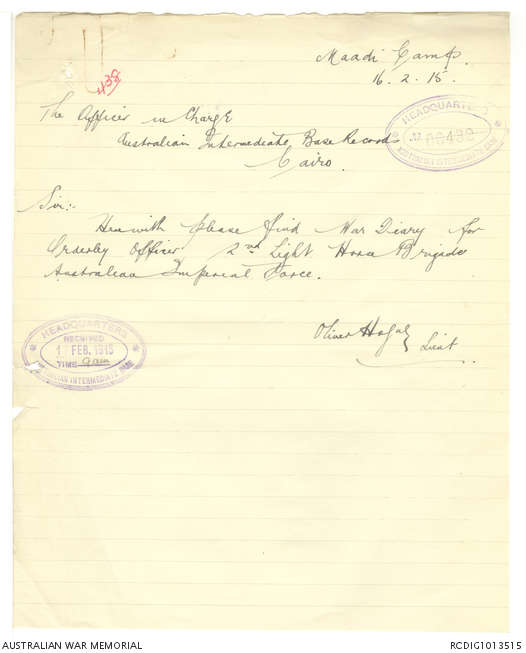 438
Maadi Camp
16.2.15.
The Officer in Charge
Australian Intermediate Base Records
Cairo.
HEADQUARTERS
06432
AUSTRALIAN INTERMEDIATE BASE
Sir:-
Herewith please find War Diary for
Orderly Officer 2nd Light Horse Brigade
Australian Imperial Force.
Oliver Hogue
Lieut
HEADQUARTERS
RECEIVED
FEB. 1915
TIME 9am
AUSTRALIAN INTERMEDIATE BASE
AUSTRALIAN WAR MEMORIAL
RCDIG1013515